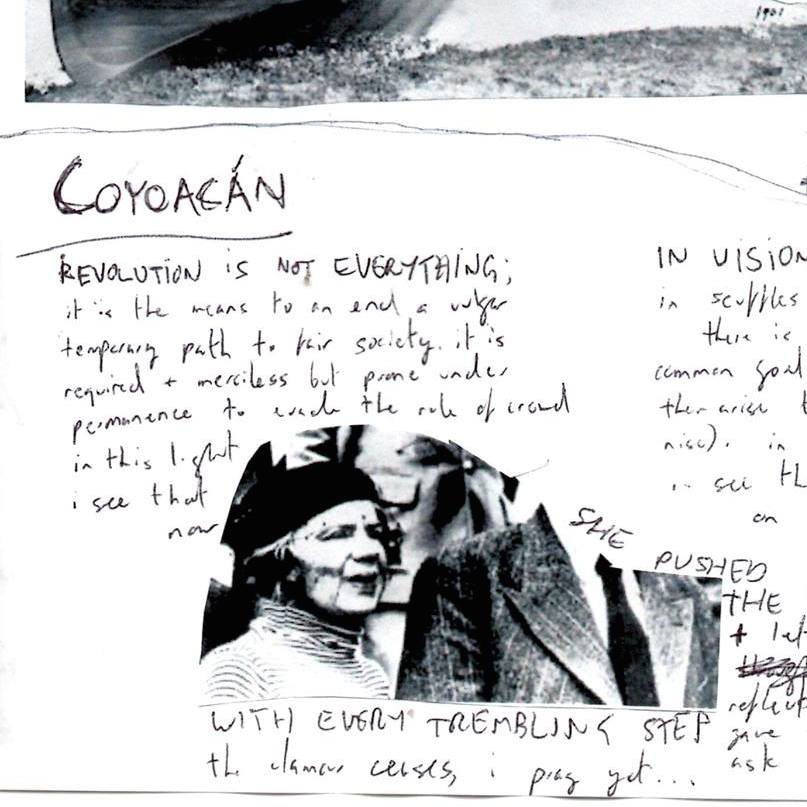 1901
COYOACÁN
REVOLUTION IS NOT EVERYTHING;
it is the means to an end a vulgar
temporary path to fair society. it is
required + merciless but prone under
permanence to evade the rule of crowd
in this light
i see that
now
WITH EVERY TREMBLING STEP
the clamour ceases, i pray yet...
IN VISION
in scuffles
there is
common goal
then arise t
nise). in
see th
on
SHE PUSHED
THE
+ let
reflect
gave
ask